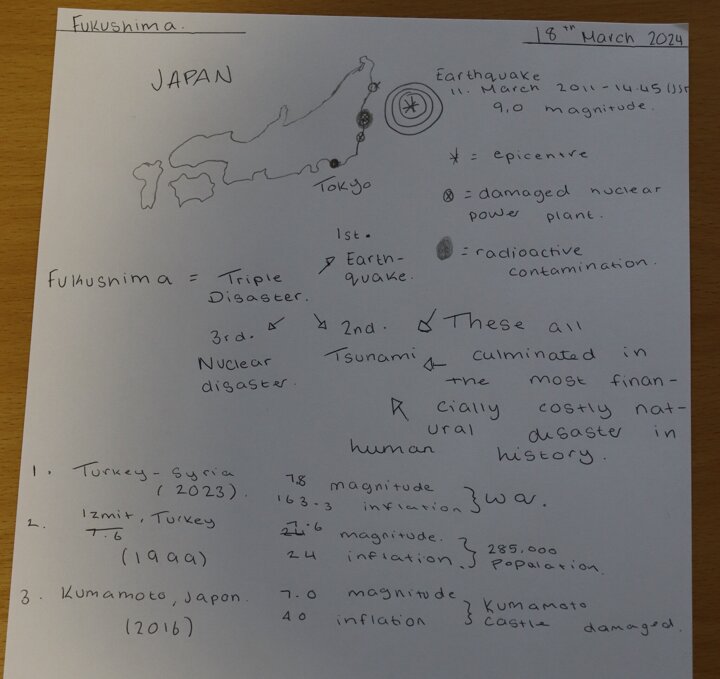 Fukushima.
18th March 2024
JAPAN
Earthquake
11. March 2011 - 14.45 (JST
9,0 magnitude.
Tokyo
* = epicentre
⊗ = damaged nuclear
power plant.
= radioactive
contamination.
Fukushima = Triple
Disaster.
1st.
Earth-
quake.
2nd.
Tsunami
3rd.
Nuclear
disaster.
These all
culminated in
the most finan-
cially costly nat-
ural disaster in
human history.
1. Turkey-Syria
(2023).
7.8 magnitude
163.3 inflation
2. Izmit, Turkey
7.6
(1999)
7.6 magnitude.
24 inflation.
285,000
Popolation.
3. Kumamoto, Japon.
(2016)
7.0 magnitude
40 inflation
Kumamoto
Castle damaged.